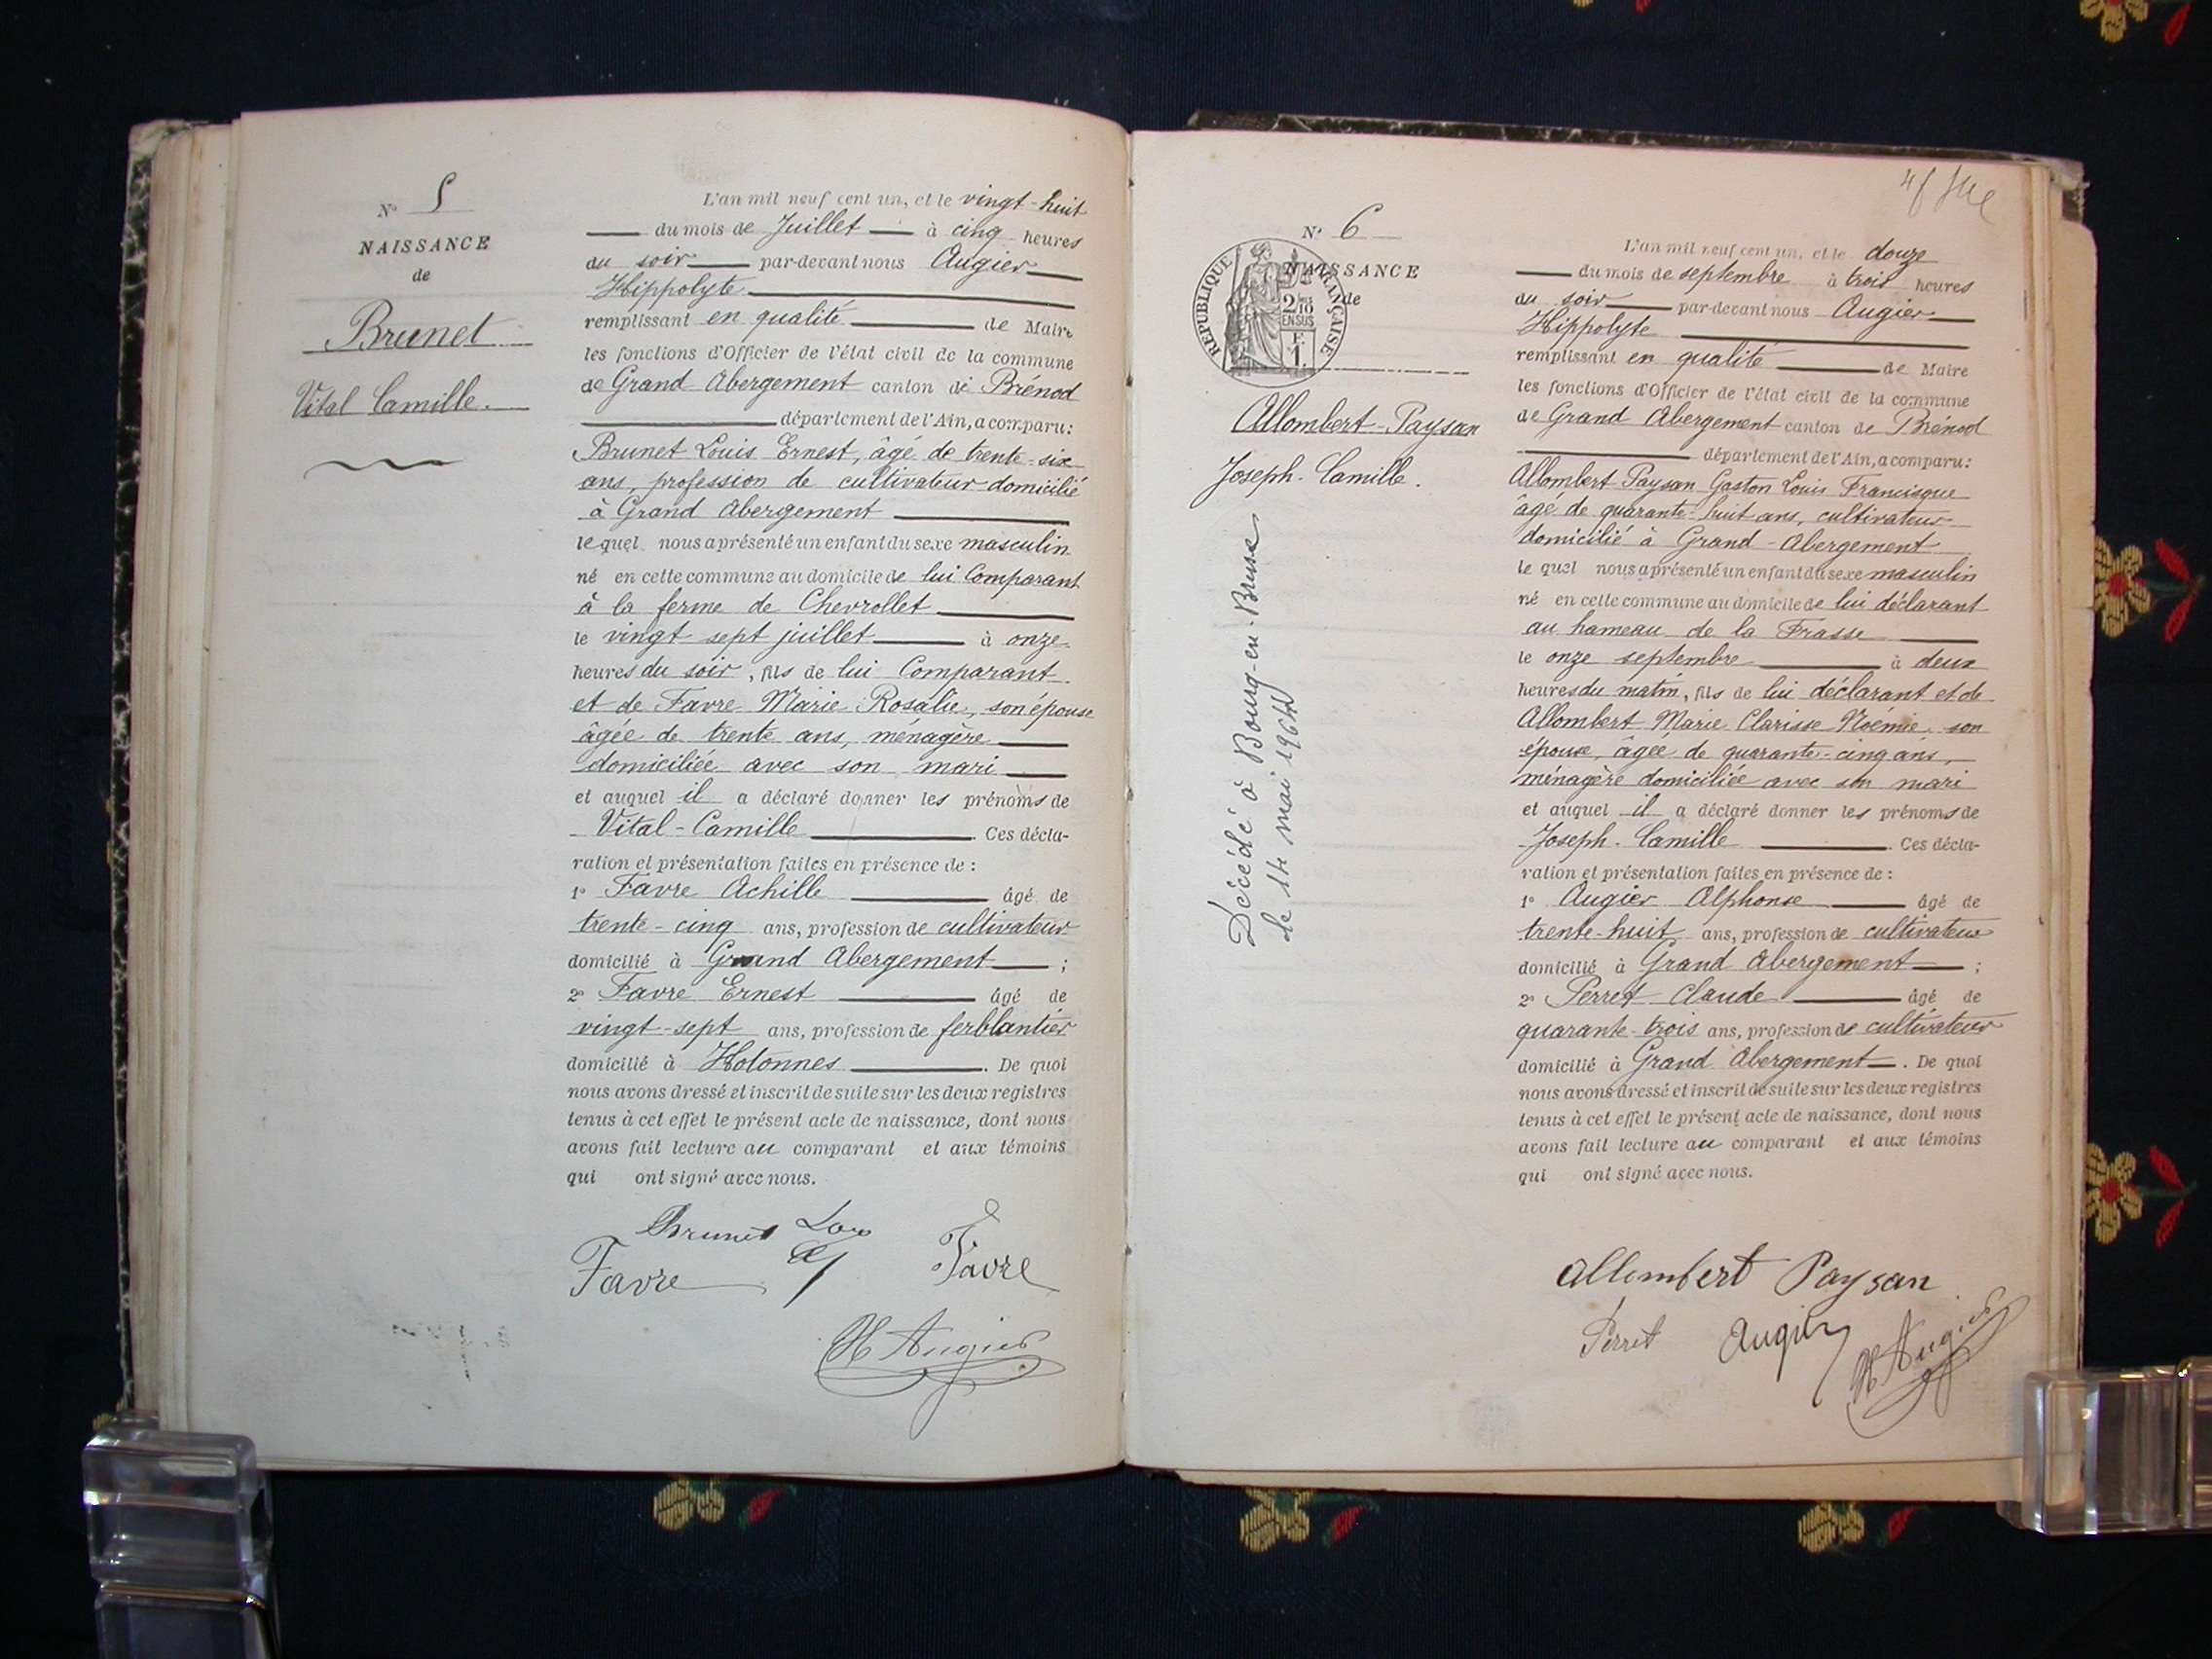 N° 5
NAISSANCE
de
Brunet
Vital Camille.
L'an mil neuf cent un, et le vingt-huit
du mois de Juillet à cinq heures
du soir par-devant nous Augier
Hippolyte
remplissant en qualité de Maire
les fonctions d'Officier de l'état civil de la commune
de Grand Abergement canton de Brénod
département de l'Ain, a comparu:
Brunet Louis Ernest, âgé de trente-six
ans, profession de cultivateur domicilié
à Grand Abergement
le quel nous a présenté un enfant du sexe masculin
né en cette commune au domicile de lui Comparant
à la ferme de Chevrollet
le vingt sept juillet à onze
heures du soir, fils de lui Comparant
et de Favre Marie Rosalie, son épouse
âgée de trente ans, ménagère
domiciliée avec son mari
et auquel il a déclaré donner les prénoms de
Vital-Camille. Ces décla-
ration et présentation faites en présence de :
1° Favre Achille âgé de
trente-cinq ans, profession de cultivateur
domicilié à Grand Abergement ;
2° Favre Ernest âgé de
vingt-sept ans, profession de ferblantier
domicilié à Hotonnes. De quoi
nous avons dressé et inscrit de suite sur les deux registres
tenus à cet effet le présent acte de naissance, dont nous
avons fait lecture au comparant et aux témoins
qui ont signé avec nous.
Brunet
Favre Favre
H Augier
N° 6
NAISSANCE
de
REPUBLIQUE FRANÇAISE
2/10
EN SUS
F.
1.
Allombert-Paysan
Joseph-Camille.
Décédé à Bourg-en-Bresse
le 14 mai 1964
L'an mil neuf cent un, et le douze
du mois de septembre à trois heures
du soir par-devant nous Augier
Hippolyte
remplissant en qualité de Maire
les fonctions d'Officier de l'état civil de la commune
de Grand Abergement canton de Brénod
département de l'Ain, a comparu:
Allombert Paysan Gaston Louis Francisque
âgé de quarante-huit ans, cultivateur
domicilié à Grand-Abergement
le quel nous a présenté un enfant du sexe masculin
né en cette commune au domicile de lui déclarant
au hameau de la Frasse
le onze septembre à deux
heures du matin, fils de lui déclarant et de
Allombert Marie Clarisse Noémie son
épouse, âgée de quarante-cinq ans,
ménagère domiciliée avec son mari
et auquel il a déclaré donner les prénoms de
Joseph-Camille. Ces décla-
ration et présentation faites en présence de :
1° Augier Alphonse âgé de
trente-huit ans, profession de cultivateur
domicilié à Grand Abergement ;
2° Perret Claude âgé de
quarante-trois ans, profession de cultivateur
domicilié à Grand Abergement. De quoi
nous avons dressé et inscrit de suite sur les deux registres
tenus à cet effet le présent acte de naissance, dont nous
avons fait lecture au comparant et aux témoins
qui ont signé avec nous.
Allombert Paysan
Perret Augier H Augier